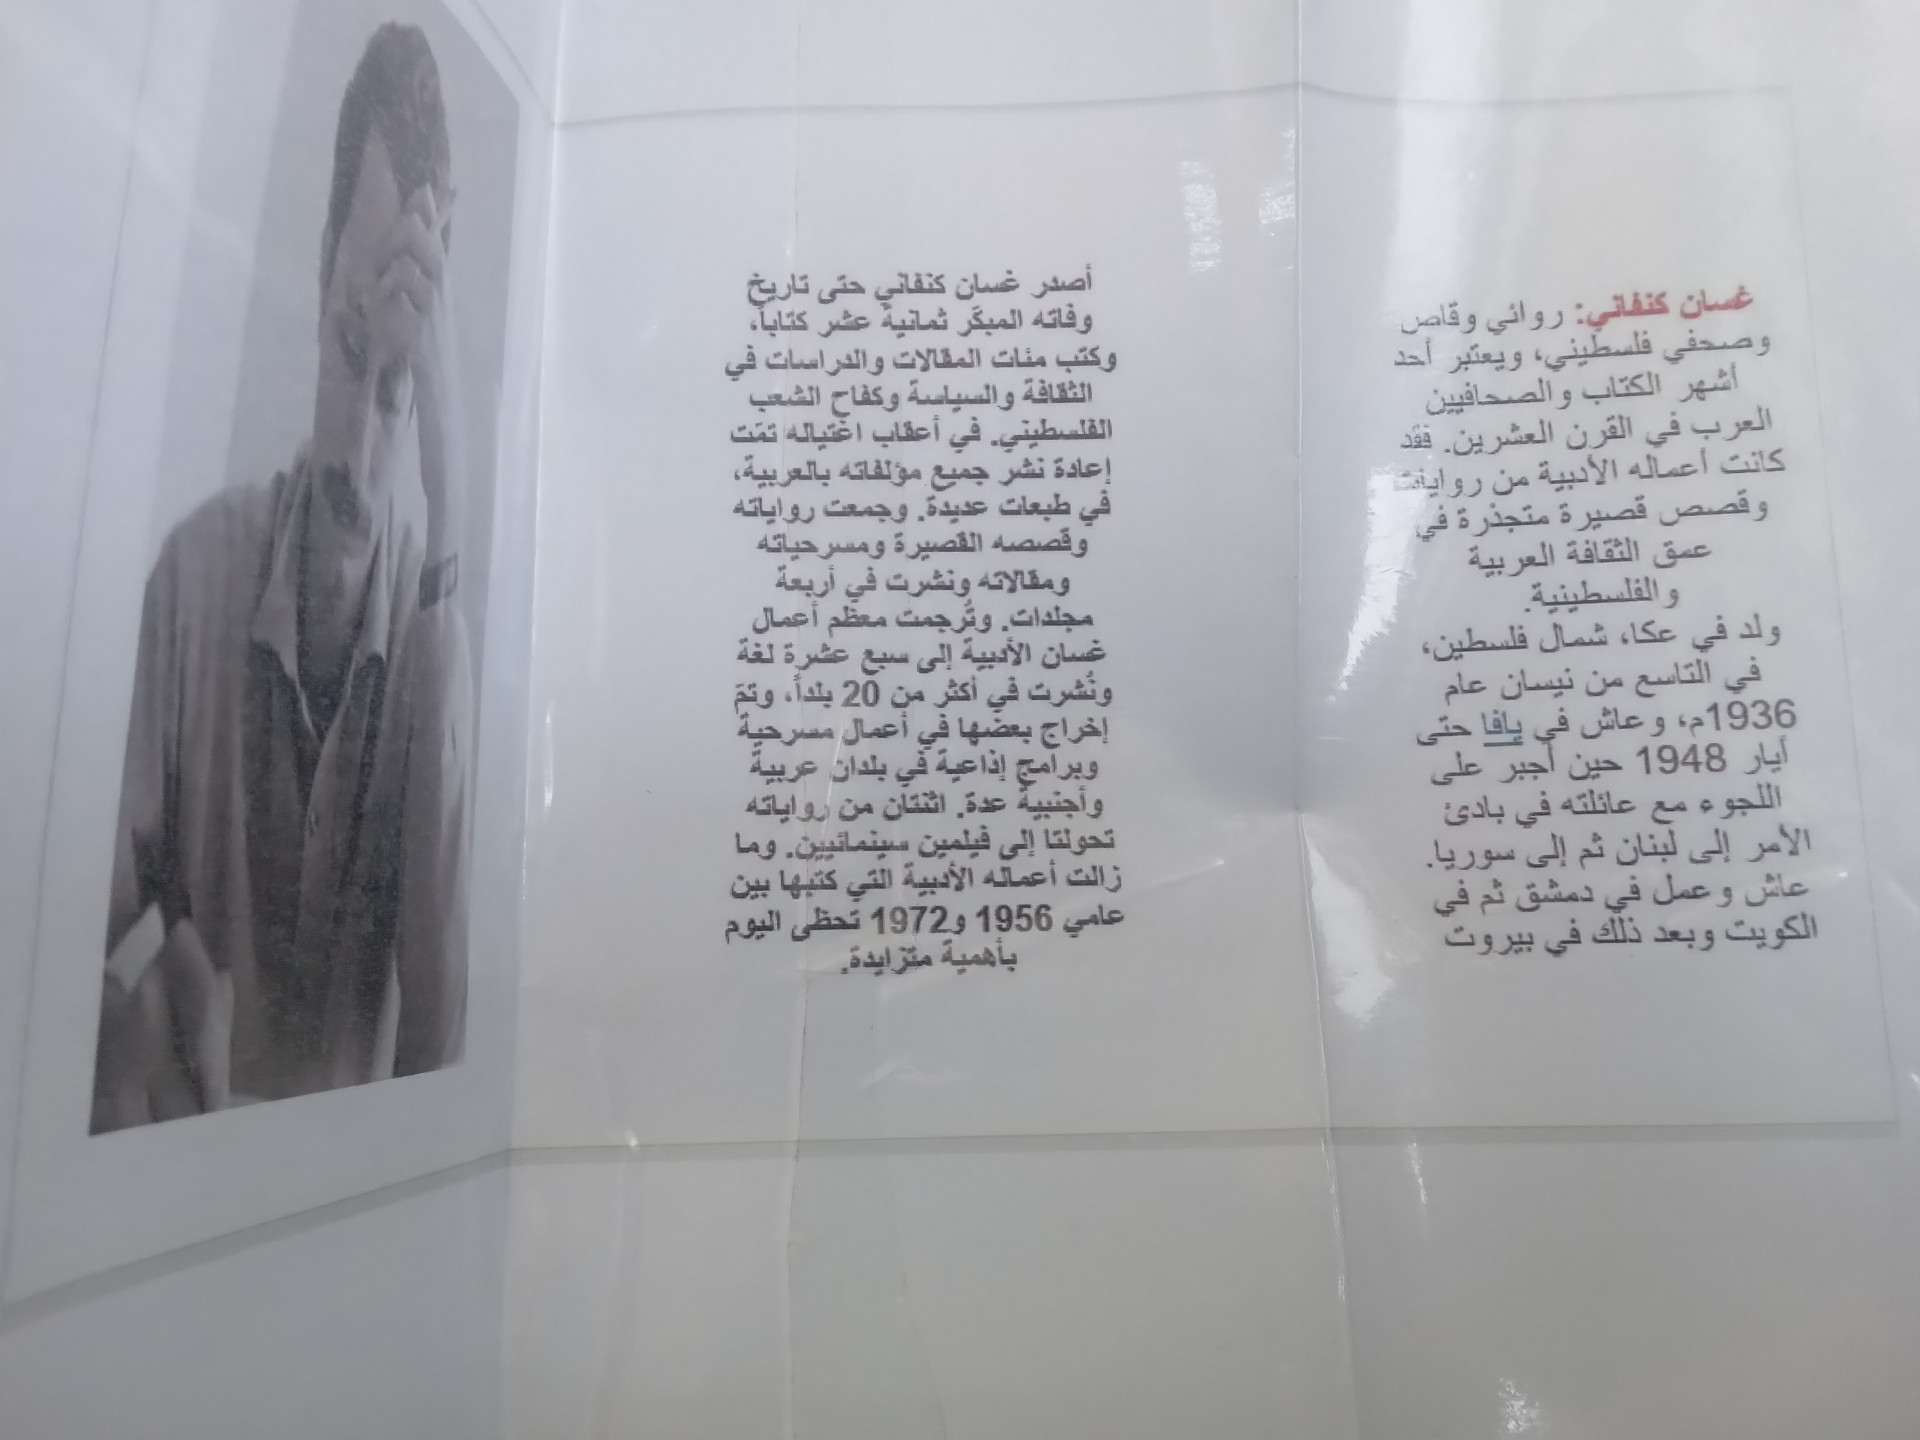 غسان كنفاني: روائي وقاص
وصحفي فلسطيني، ويعتبر أحد
أشهر الكتاب والصحافيين
العرب في القرن العشرين. فقد
كانت أعماله الأدبية من روايات
وقصص قصيرة متجذرة في
عمق الثقافة العربية
والفلسطينية.
ولد في عكا، شمال فلسطين،
في التاسع من نيسان عام
1936م، وعاش في يافا حتى
أيار 1948 حين أجبر على
اللجوء مع عائلته في بادئ
الأمر إلى لبنان ثم إلى سوريا.
عاش وعمل في دمشق ثم في
الكويت وبعد ذلك في بيروت
أصدر غسان كنفاني حتى تاريخ
وفاته المبكّر ثمانية عشر كتاباً،
وكتب مئات المقالات والدراسات في
الثقافة والسياسة وكفاح الشعب
الفلسطيني. في أعقاب اغتياله تمّت
إعادة نشر جميع مؤلفاته بالعربية،
في طبعات عديدة. وجمعت رواياته
وقصصه القصيرة ومسرحياته
ومقالاته ونشرت في أربعة
مجلدات. وتُرجمت معظم أعمال
غسان الأدبية إلى سبع عشرة لغة
ونُشرت في أكثر من 20 بلداً، وتمّ
إخراج بعضها في أعمال مسرحية
وبرامج إذاعية في بلدان عربية
وأجنبية عدة. اثنتان من رواياته
تحولتا إلى فيلمين سينمائيين. وما
زالت أعماله الأدبية التي كتبها بين
عامي 1956 و1972 تحظى اليوم
بأهمية متزايدة.